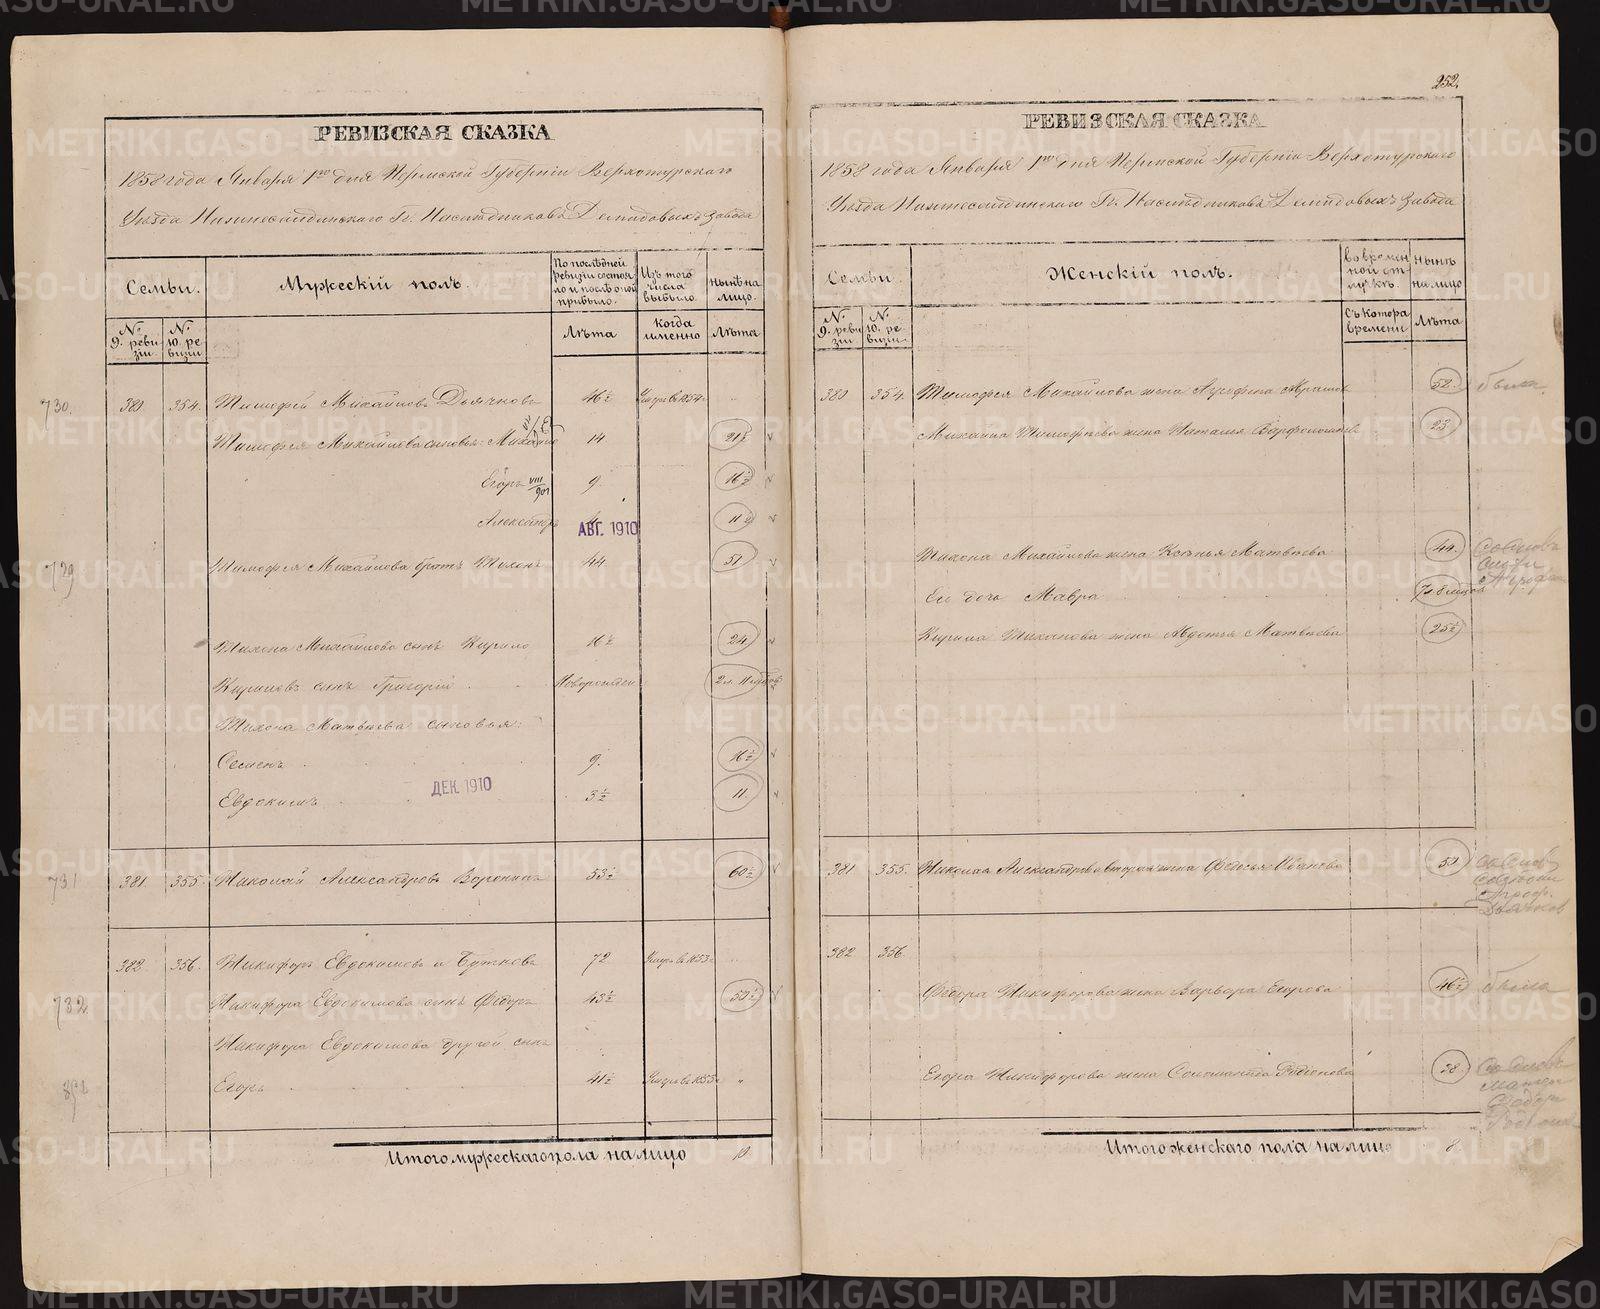 252.
РЕВИЗСКАЯ СКАЗКА
1858 года Января 1го дня Пермской Губерніи Верхотурскаго
Уѣзда Нижнесалдинскаго Гг. Наслѣдниковъ Демидовыхъ завода
Семьи.
Мужескій полъ.
По послѣдней ревизіи состояло и послѣ оной прибыло.
Изъ того числа выбыло.
Нынѣ на лицо.
№ 9. ревизіи
№ 10. ревизіи
Лѣта
Когда именно
Лѣта
730.
380 354. Тимофей Михайловъ Дьячковъ 46½ Умеръ въ 1854 г
Тимофея Михайлова сыновья: Михаилъ 14 21½
Егоръ VIII/901 9. 16½
Александръ 4 11½
АВГ. 1910
729
Тимофея Михайлова братъ Тихонъ 44 51
Тихона Михайлова сынъ Кирило 16½ 24
Кириловъ сынъ Григорій Новорожден 2 л. 11 мцов
Тихона Матвѣева сыновья:
Семенъ 9. 16½
Евдокимъ 3½ 11
ДЕК. 1910
731
381. 355 Николай Александровъ Воронинъ 53½ 60½
382 356. Никифоръ Евдокимовъ 72 Умеръ въ 1853 г
732
Никифора Евдокимова сынъ Федоръ 43½ 50½
Никифора Евдокимова другой сынъ
852
Егоръ 41½ Умеръ въ 1855 г
Итого мужескаго пола на лицо 10
РЕВИЗСКАЯ СКАЗКА
1858 года Января 1го дня Пермской Губерніи Верхотурскаго
Уѣзда Нижнесалдинскаго Гг. Наслѣдниковъ Демидовыхъ завода
Семьи.
Женскій полъ.
Во временной отлучкѣ.
Нынѣ на лицо
№ 9. ревизіи
№ 10. ревизіи
Съ котора времени
Лѣта
380 354. Тимофея Михайлова жена Агрофена Абрамова 52.
Михаила Тимофѣева жена Наталья Варфоломѣева 23
Тихона Михайлова жена Ксенья Матвѣева 44.
Ея дочь Мавра 7 л. 8 мцов
Кирила Тихонова жена Авдотья Матвѣева 25½
381 355. Николая Александрова вторая жена Федосья Иванова 50
382 356
Федора Никифорова жена Варвара Егорова 46½
Егора Никифорова жена Соломанида Родионова 38
Итого женскаго пола на лицо 8.
METRIKI.GASO-URAL.RU